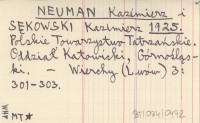 NEUMAN Kazimierz i
SĘKOWSKI Kazimierz 1925.
Polskie Towarzystwo Tatrzańskie.
Oddział Katowicki, Górnośląs-
ki. — Wierchy (Lwów) 3:
301-303.
WHP MT★